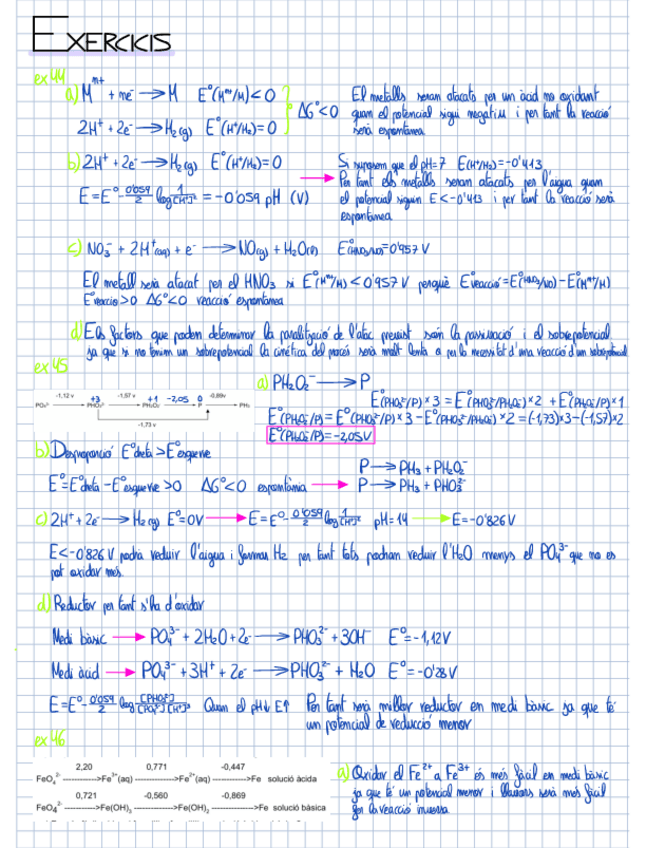 EXERCICIS
ex 44
a) M^m+ + ne⁻ → M   E°(M^m+/M) < 0
2H⁺ + 2e⁻ → H₂(g)   E°(H⁺/H₂) = 0
ΔG° < 0
El metalls seran atacats per un àcid no oxidant
quan el potencial sigui negatiu i per tant la reacció
serà espontànea
b) 2H⁺ + 2e⁻ → H₂(g)   E°(H⁺/H₂) = 0
E = E° - 0'059/2 log 1/[H⁺]² = -0'059 pH (V)
Si suposem que el pH=7   E(H⁺/H₂) = -0'413
Per tant els metalls seran atacats per l'aigua quan
el potencial siguin E < -0'413 i per tant la reacció serà
espontànea
c) NO₃⁻ + 2H⁺(aq) + e⁻ → NO(g) + H₂O(l)   E(HNO₃/NO) = 0'957 V
El metall serà atacat per el HNO₃ si E°(M^m+/M) < 0'957 V perquè E°reacció = E°(HNO₃/NO) - E°(M^m+/M)
E°reacció > 0   ΔG° < 0   reacció espontànea
d) Els factors que poden determinar la paralització de l'atac previst són la passivació i el sobrepotencial
ja que si no tenim un sobrepotencial la cinètica del procés serà molt lenta o per la necessitat d'una reacció d'un sobrepotencial
ex 45
-1,12 v   +3   -1,57 v   +1   -2,05   0   -0,89v
PO₄³⁻ → PHO₃²⁻ → PH₂O₂⁻ → P → PH₃
-1,73 v
a) PH₂O₂⁻ → P
E°(PHO₃²⁻/P) × 3 = E°(PHO₃²⁻/PH₂O₂⁻) × 2 + E°(PH₂O₂⁻/P) × 1
E°(PH₂O₂⁻/P) = E°(PHO₃²⁻/P) × 3 - E°(PHO₃²⁻/PH₂O₂⁻) × 2 = (-1,73)×3 - (-1,57)×2
E°(PH₂O₂⁻/P) = -2,05 V
b) Desproporció E°dreta > E°esquerre
E° = E°dreta - E°esquerre > 0   ΔG° < 0   espontània →
P → PH₃ + PH₂O₂⁻
P → PH₃ + PHO₃²⁻
c) 2H⁺ + 2e⁻ → H₂(g)   E° = 0V → E = E° - 0'059/2 log 1/[H⁺]²   pH = 14 → E = -0'826 V
E < -0'826 V podrà reduir l'aigua i formar H₂ per tant tots podran reduir l'H₂O menys el PO₄³⁻ que no es
pot oxidar més.
d) Reductor per tant s'ha d'oxidar
Medi bàsic → PO₄³⁻ + 2H₂O + 2e⁻ → PHO₃²⁻ + 3OH⁻   E° = -1,12V
Medi àcid → PO₄³⁻ + 3H⁺ + 2e⁻ → PHO₃²⁻ + H₂O   E° = -0'28 V
E = E° - 0'059/2 log [PHO₃²⁻]/[PO₄³⁻][H⁺]³   Quan el pH↓ E↑
Per tant serà millor reductor en medi bàsic ja que té
un potencial de reducció menor
ex 46
2,20   0,771   -0,447
FeO₄²⁻ ------------>Fe³⁺(aq) ------------>Fe²⁺(aq) ------------>Fe solució àcida
0,721   -0,560   -0,869
FeO₄²⁻ ------------>Fe(OH)₃ ------------>Fe(OH)₂ ------------>Fe solució bàsica
a) Oxidar el Fe²⁺ a Fe³⁺ és més fàcil en medi bàsic
ja que té un potencial menor i llavors serà més fàcil
fer la reacció inversa